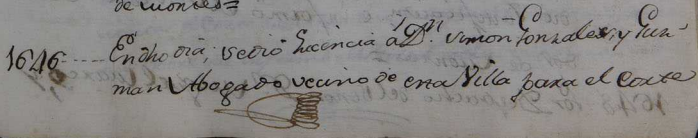 de montes=
1646---- En dho dia, se dió Licencia á Dn. Simon Gonzales, y Guz-
man Abogado vecino de esta Villa para el Corte